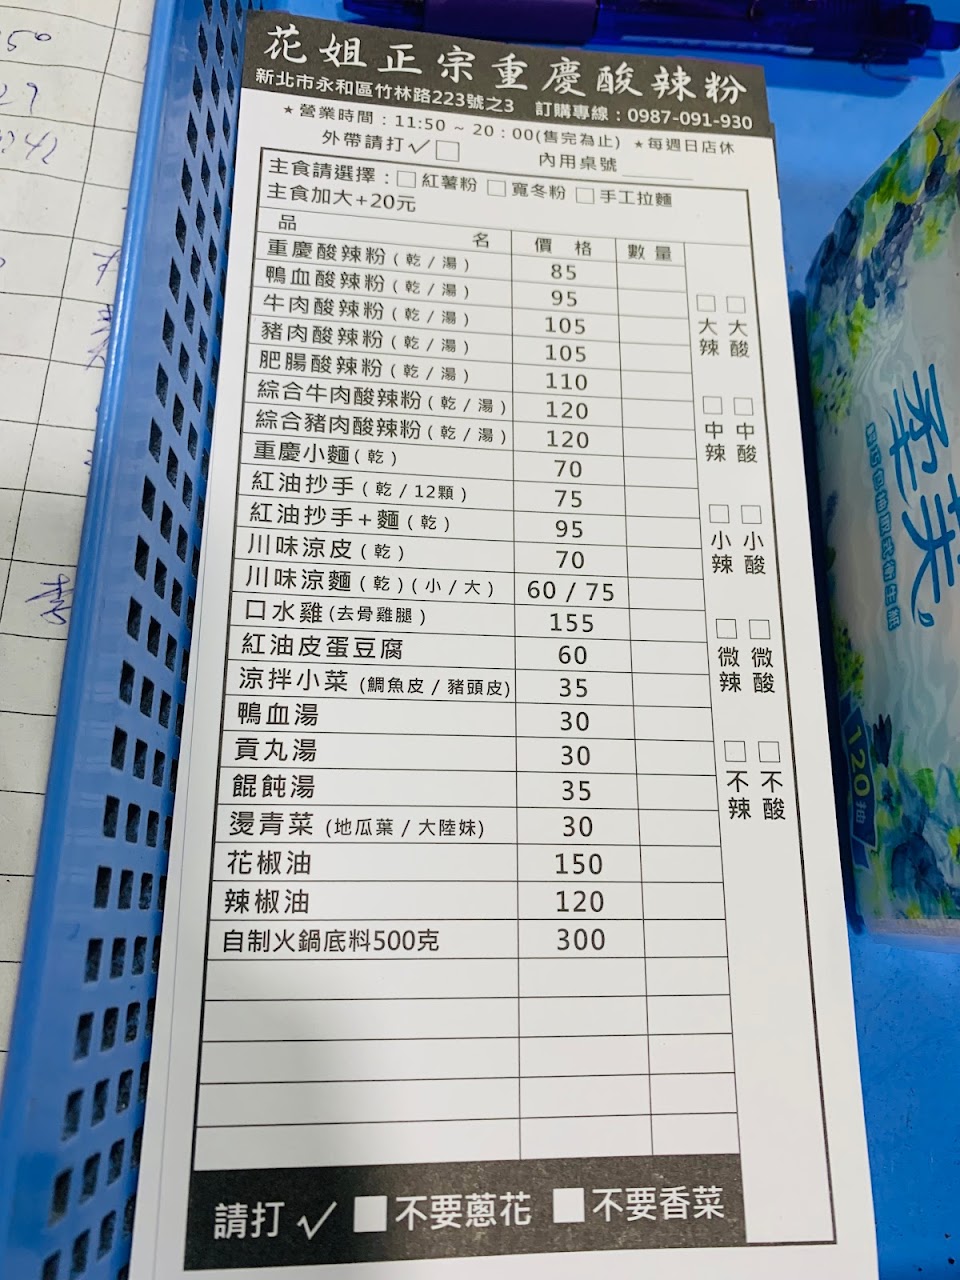 花姐正宗重慶酸辣粉
新北市永和區竹林路223號之3 訂購專線：0987-091-930
★營業時間：11:50 ~ 20：00(售完為止) ★每週日店休
外帶請打✓□ 內用桌號______
主食請選擇：□紅薯粉 □寬冬粉 □手工拉麵
主食加大+20元
品 名 價 格 數 量
重慶酸辣粉(乾/湯) 85
鴨血酸辣粉(乾/湯) 95
牛肉酸辣粉(乾/湯) 105
豬肉酸辣粉(乾/湯) 105
肥腸酸辣粉(乾/湯) 110
綜合牛肉酸辣粉(乾/湯) 120
綜合豬肉酸辣粉(乾/湯) 120
重慶小麵(乾) 70
紅油抄手(乾/12顆) 75
紅油抄手+麵(乾) 95
川味涼皮(乾) 70
川味涼麵(乾)(小/大) 60 / 75
口水雞(去骨雞腿) 155
紅油皮蛋豆腐 60
涼拌小菜 (鯛魚皮/豬頭皮) 35
鴨血湯 30
貢丸湯 30
餛飩湯 35
燙青菜 (地瓜葉/大陸妹) 30
花椒油 150
辣椒油 120
自制火鍋底料500克 300
□大辣 □大酸
□中辣 □中酸
□小辣 □小酸
□微辣 □微酸
□不辣 □不酸
請打✓ □不要蔥花 □不要香菜
120抽